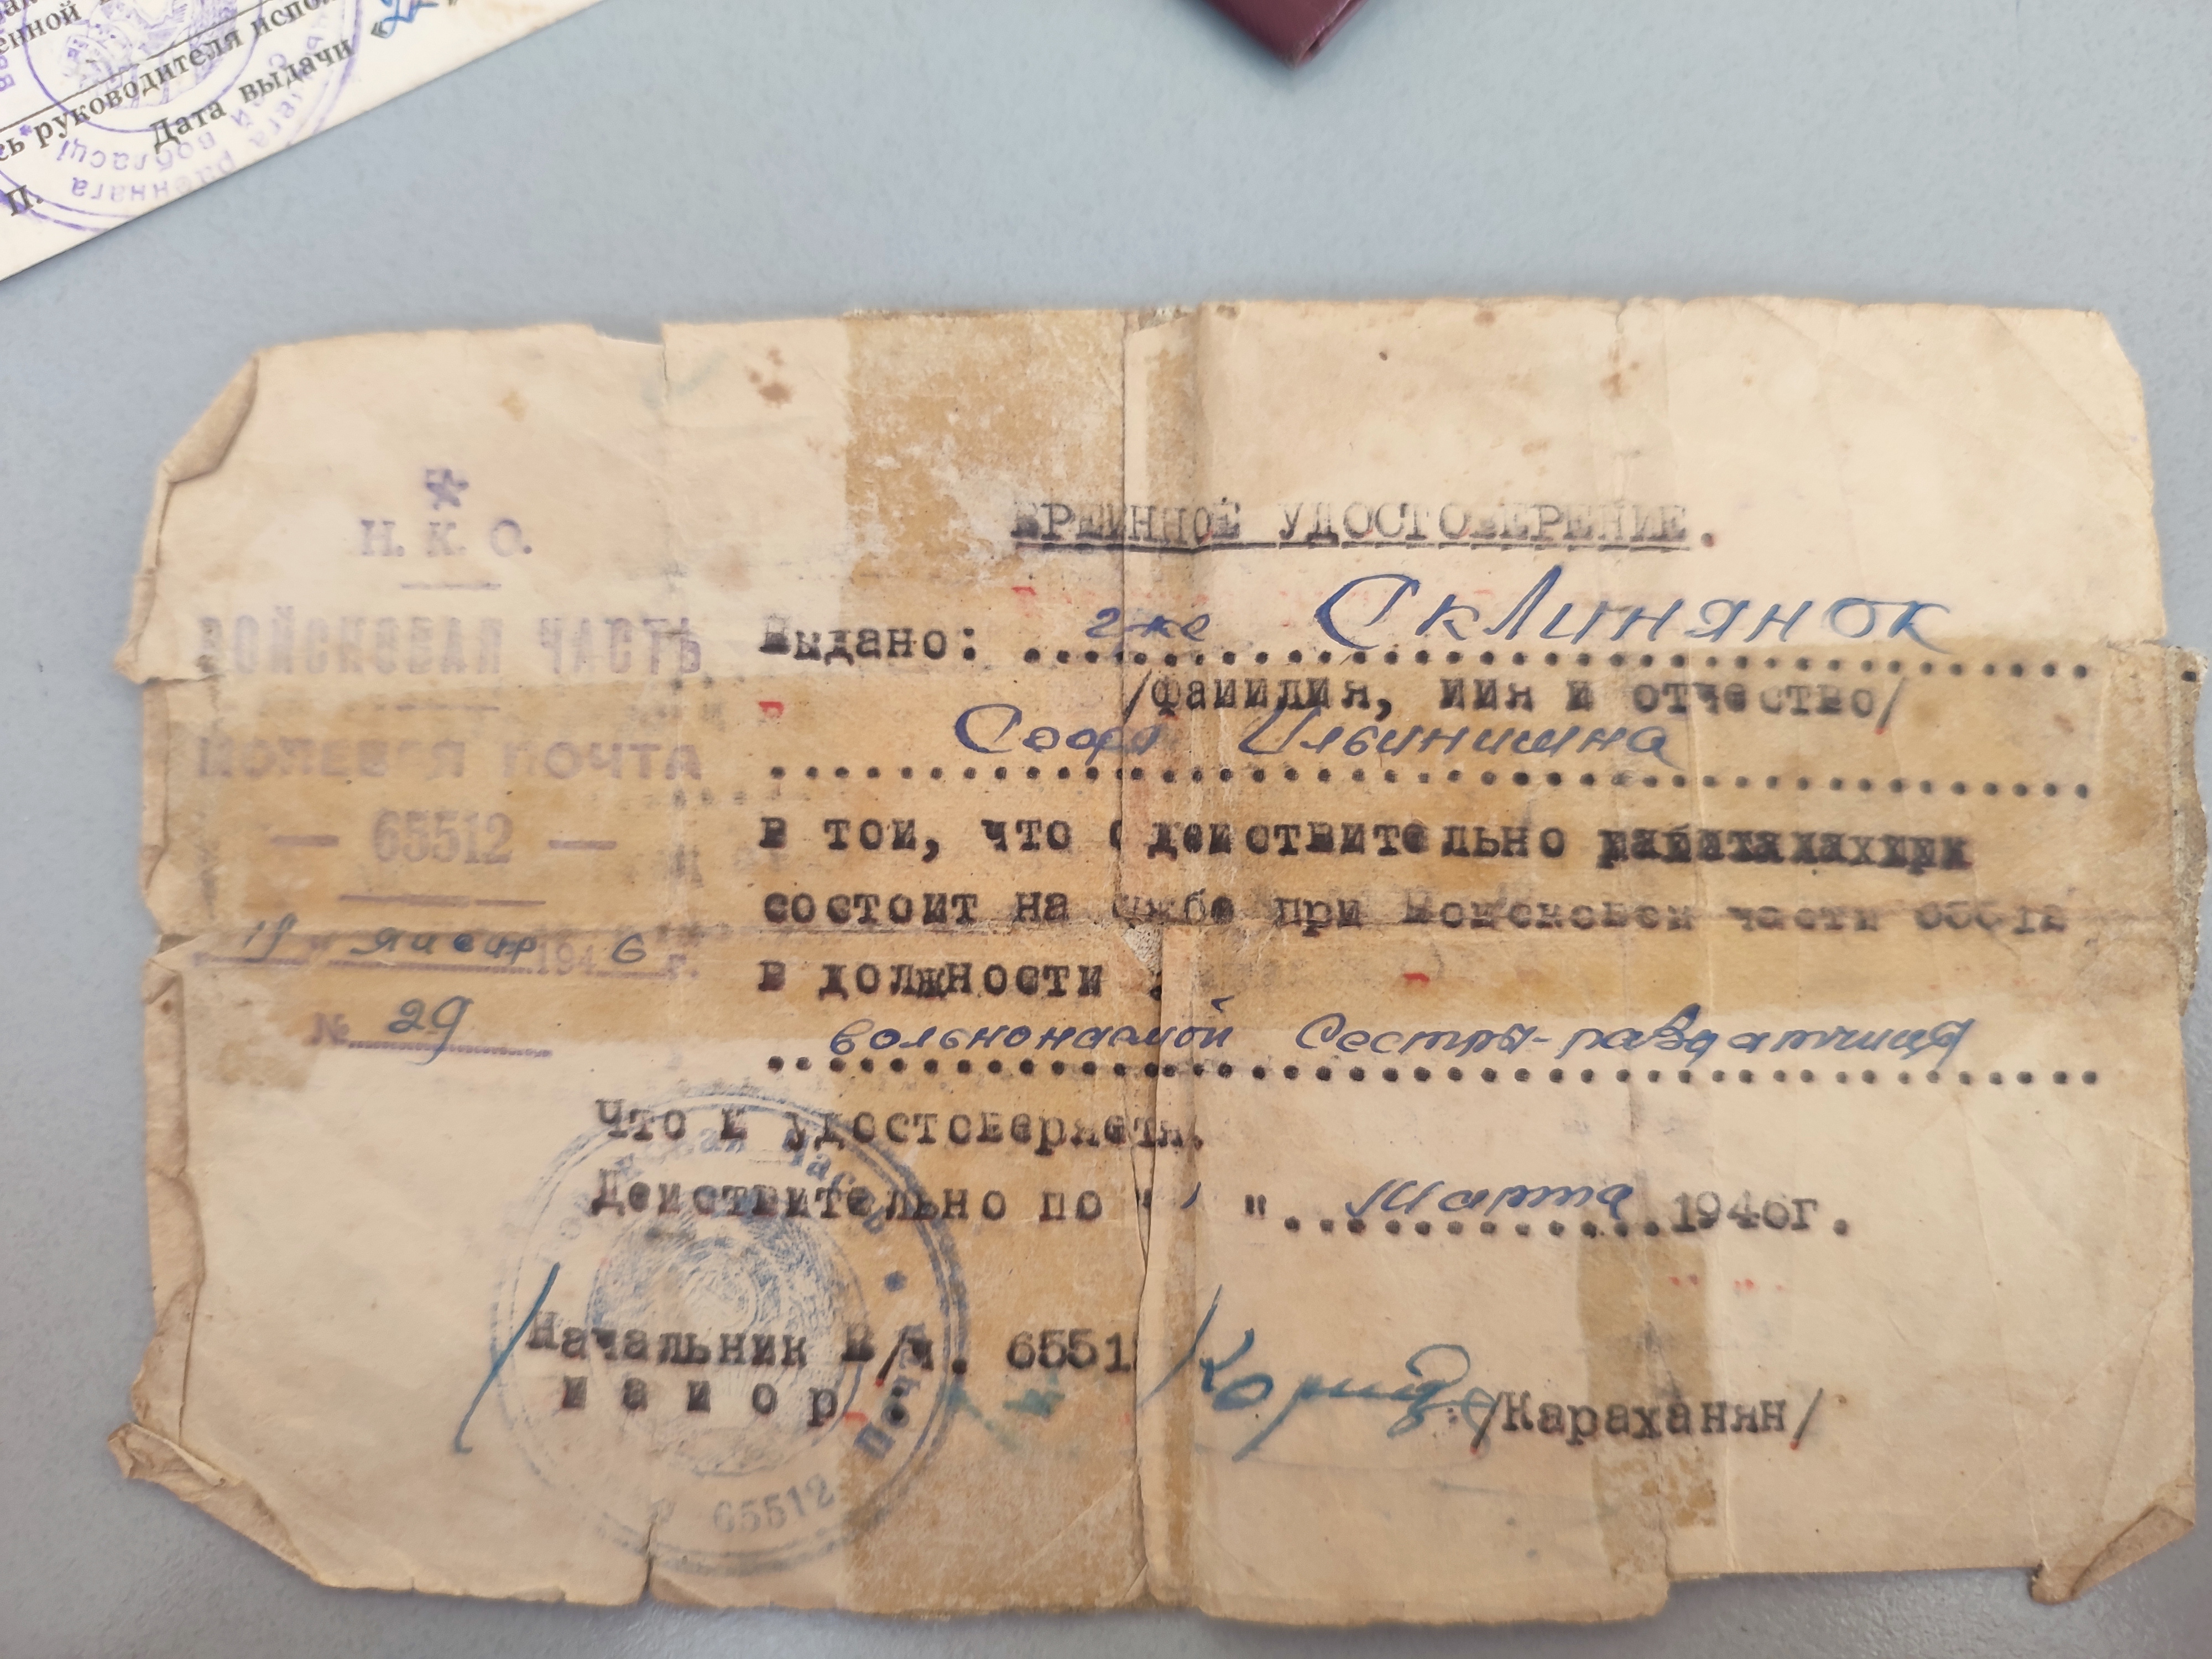 енной
ь руководителя испол
Дата выдачи «22»
П.
раённага
вобласці
Н. К. О.
ВОЙСКОВАЯ ЧАСТЬ
ПОЛЕВАЯ ПОЧТА
— 65512 —
19 январ 1946 г.
№ 29
ВРЕМННОЕ УДОСТОВЕРЕНИЕ.
Выдано: гже Склинянок
/фамилия, имя и отчество/
Софя Ильинишна
в том, что действительно
состоит на службе при Войсковой части 65512
в должности :
вольнонаемой Сестры-раздатчица
Что и удостоверяетя.
Действительно по " " Марта 1946г.
Начальник В/ч. 6551
майор : /Караханян/
Войсковая часть * Полевая Почта 65512